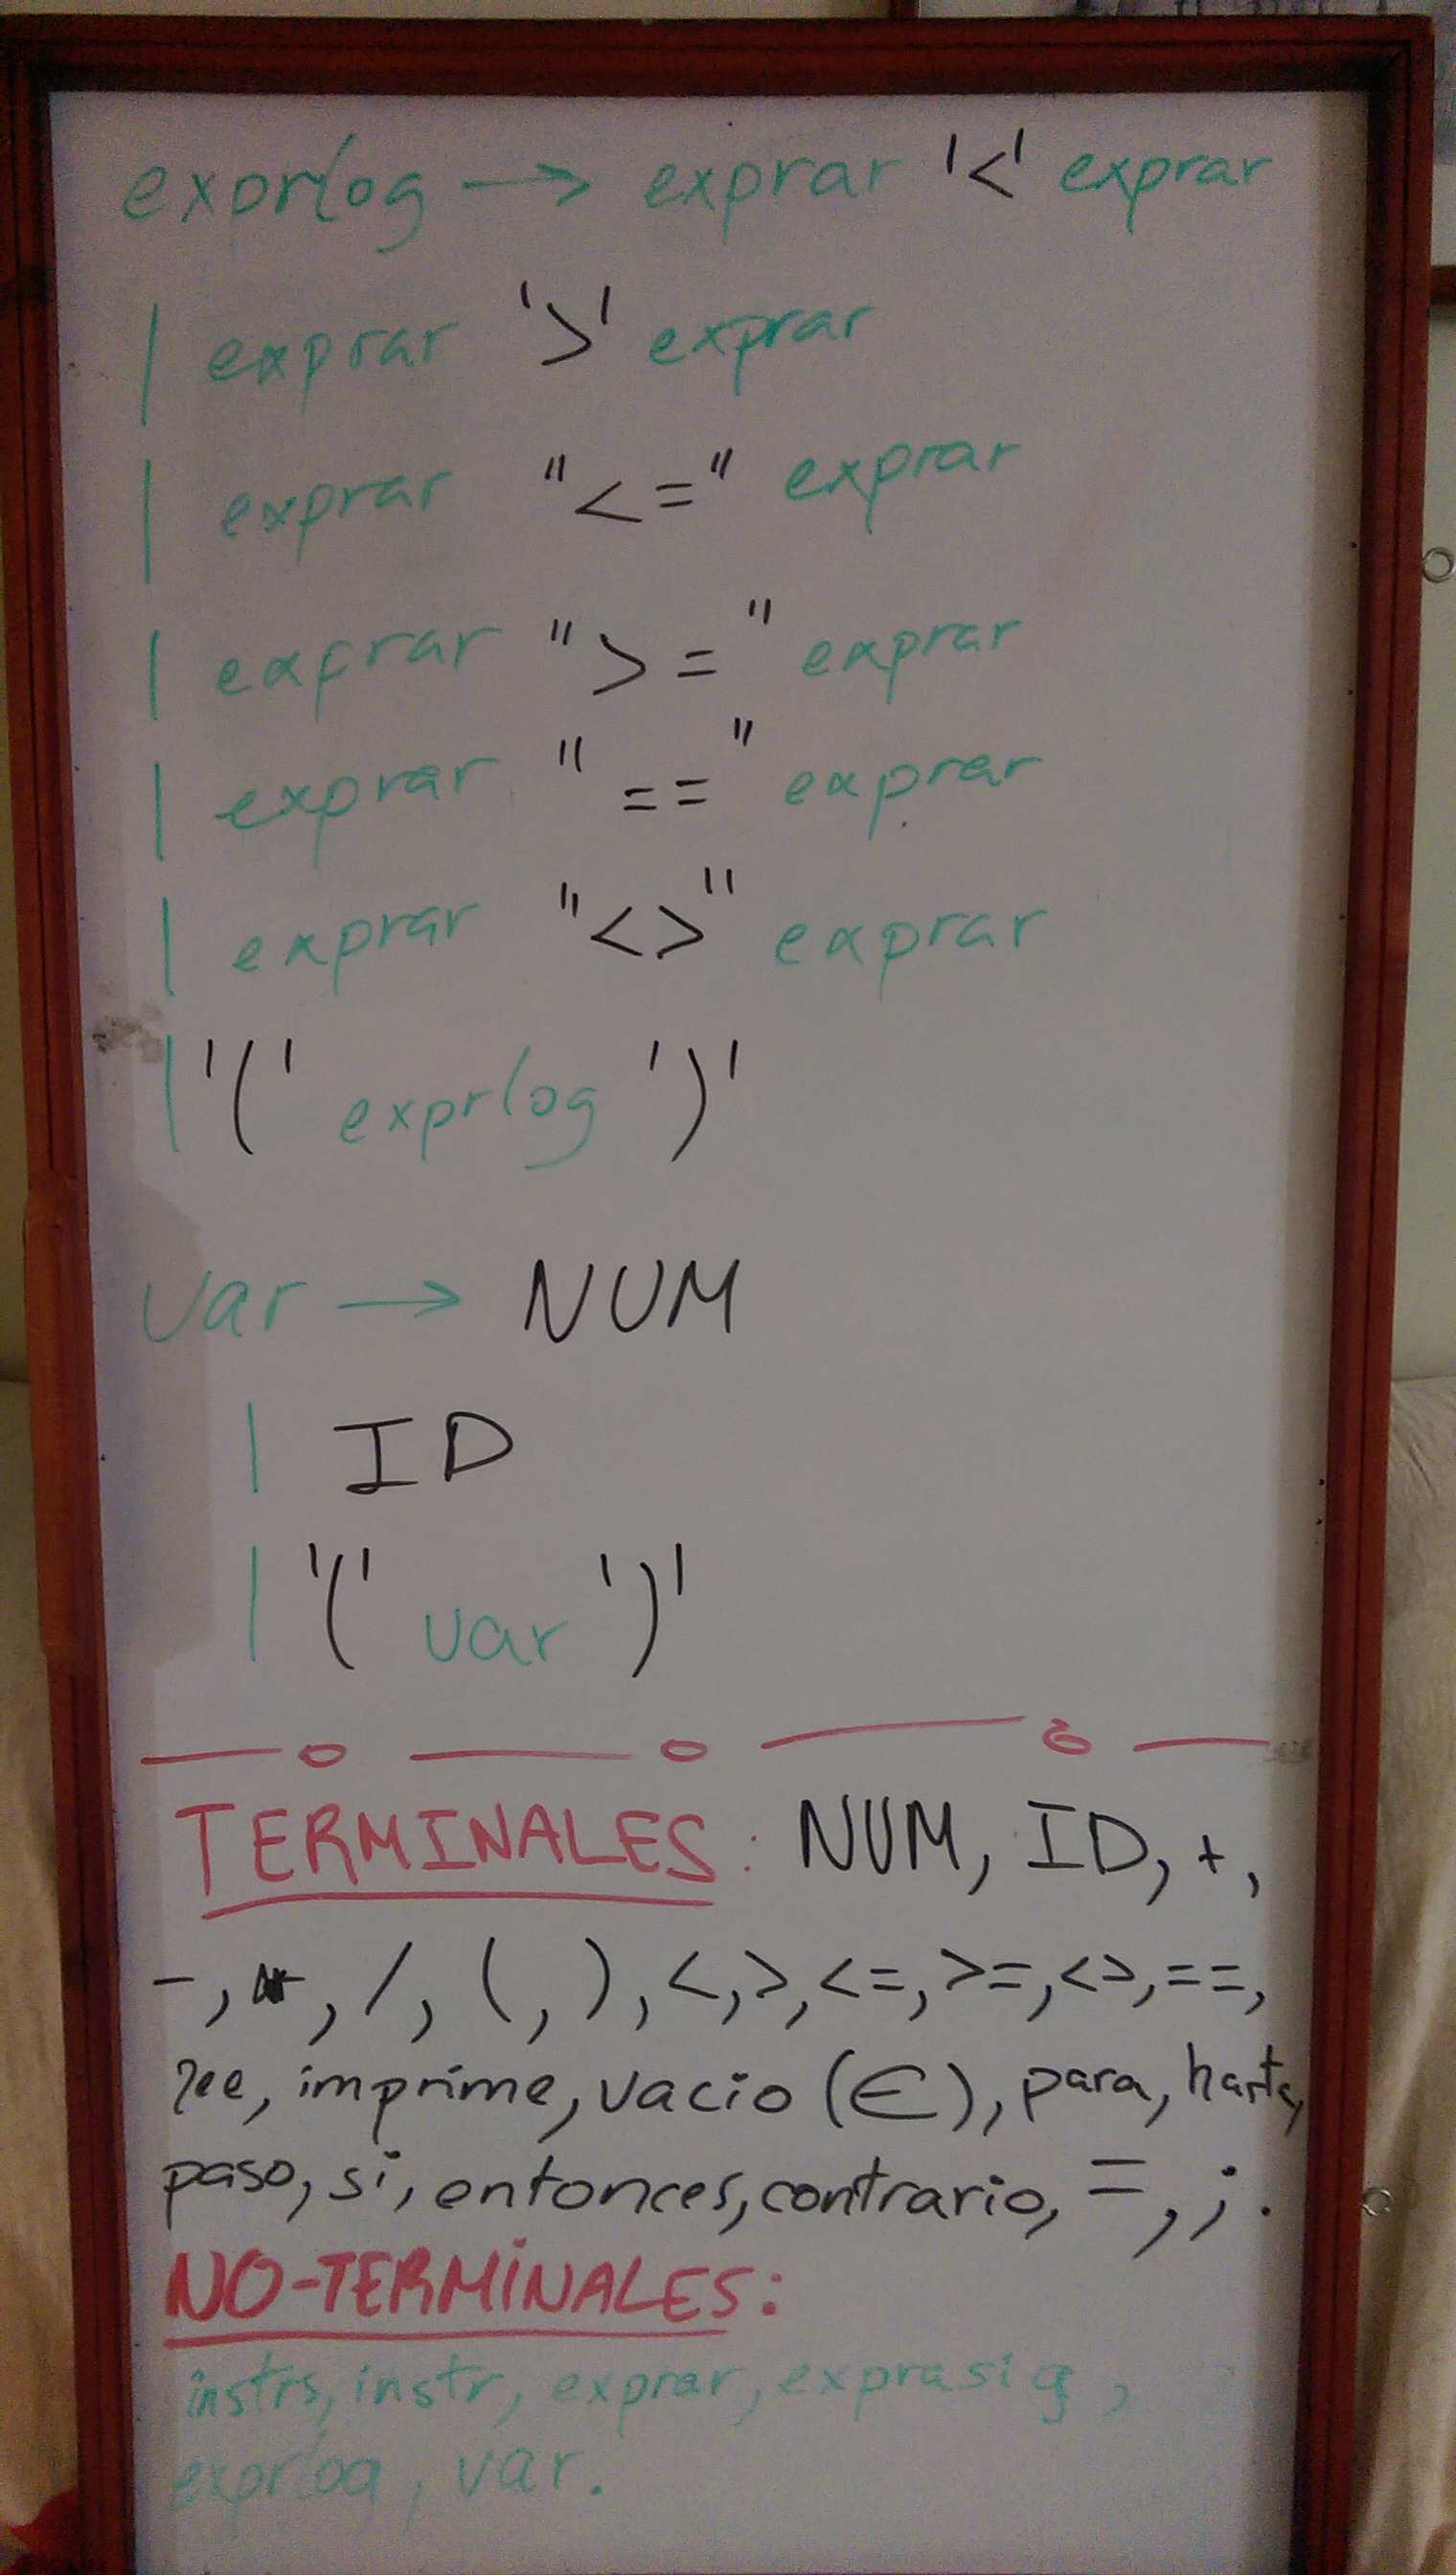 exprlog → exprar '<' exprar
| exprar '>' exprar
| exprar "<=" exprar
| exprar ">=" exprar
| exprar "==" exprar
| exprar "<>" exprar
| '(' exprlog ')'
var → NUM
| ID
| '(' var ')'
TERMINALES: NUM, ID, +,
-, *, /, (, ), <, >, <=, >=, <>, ==,
lee, imprime, vacio (∈), para, hasta,
paso, si, entonces, contrario, =, ; .
NO-TERMINALES:
instrs, instr, exprar, exprasig,
exprlog, var.